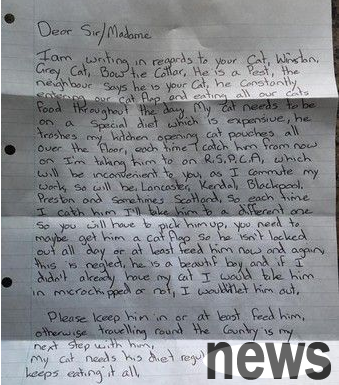 Dear Sir/Madame
I am writing in regards to your Cat, Winston,
Grey Cat, Bow tie Collar, He is a Pest, the
neighbour says he is your Cat, he constantly
entering our cat flap and eating all our cats
food throughout the day. My cat needs to be
on a special diet which is expensive, he
trashes my kitchen opening Cat pouches all
over the floor, each time I catch him from now
on I'm taking him to an R.S.P.C.A, which
will be inconvenient to you, as I commute my
work, so will be, Lancaster, Kendal, Blackpool,
Preston and sometimes Scotland, so each time
I catch him I'll take him to a different one
so you will have to pick him up, you need to
maybe get him a cat flap so he isn't locked
out all day or at least feed him now and again,
this is neglect, he is a beautiful boy and if I
didn't already have my cat I would take him
in microchipped or not, I wouldn't let him out.
Please keep him in or at least feed him,
otherwise travelling round the Country is my
next step with him,
My cat needs his diet regul
keeps eating it all,
news